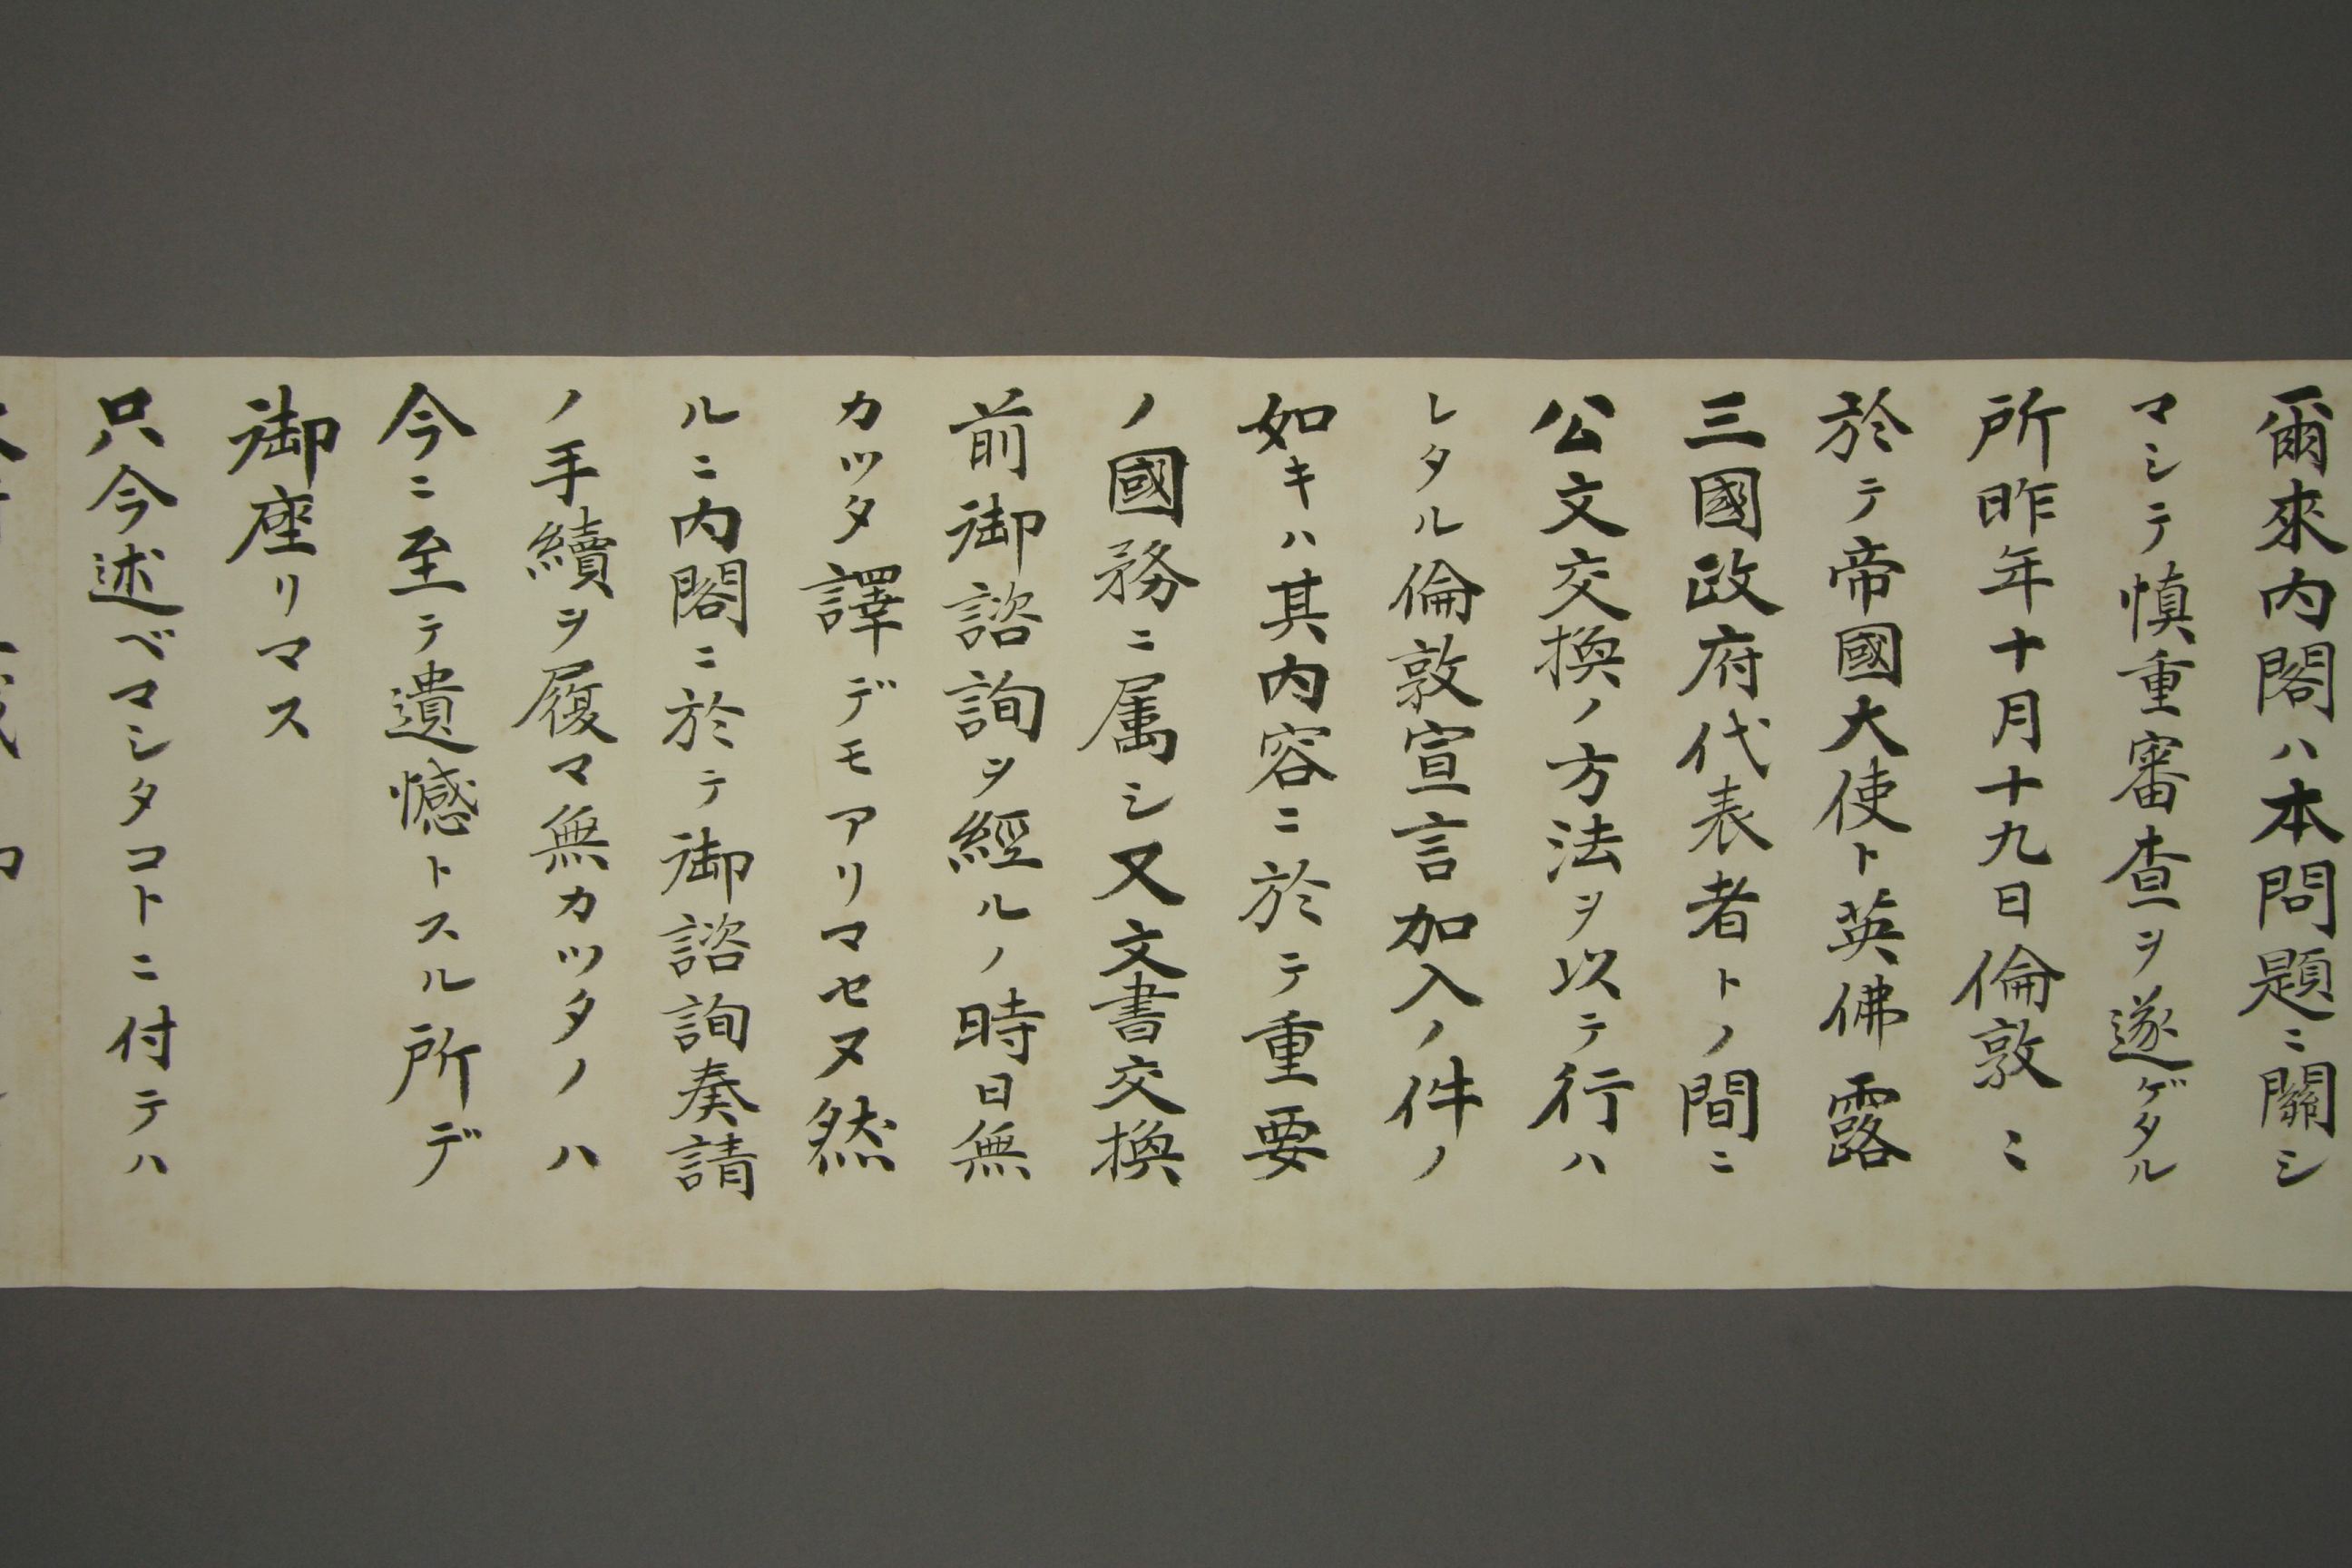 爾來内閣ハ本問題ニ關シ
マシテ愼重審査ヲ遂ゲタル
所昨年十月十九日倫敦ニ
於テ帝國大使ト英佛露
三國政府代表者トノ間ニ
公文交換ノ方法ヲ以テ行ハ
レタル倫敦宣言加入ノ件ノ
如キハ其内容ニ於テ重要
ノ國務ニ属シ又文書交換
前御諮詢ヲ經ルノ時日無
カツタ譯デモアリマセヌ然
ルニ内閣ニ於テ御諮詢奏請
ノ手續ヲ履マ無カツタノハ
今ニ至テ遺憾トスル所デ
御座リマス
只今述ベマシタコトニ付テハ